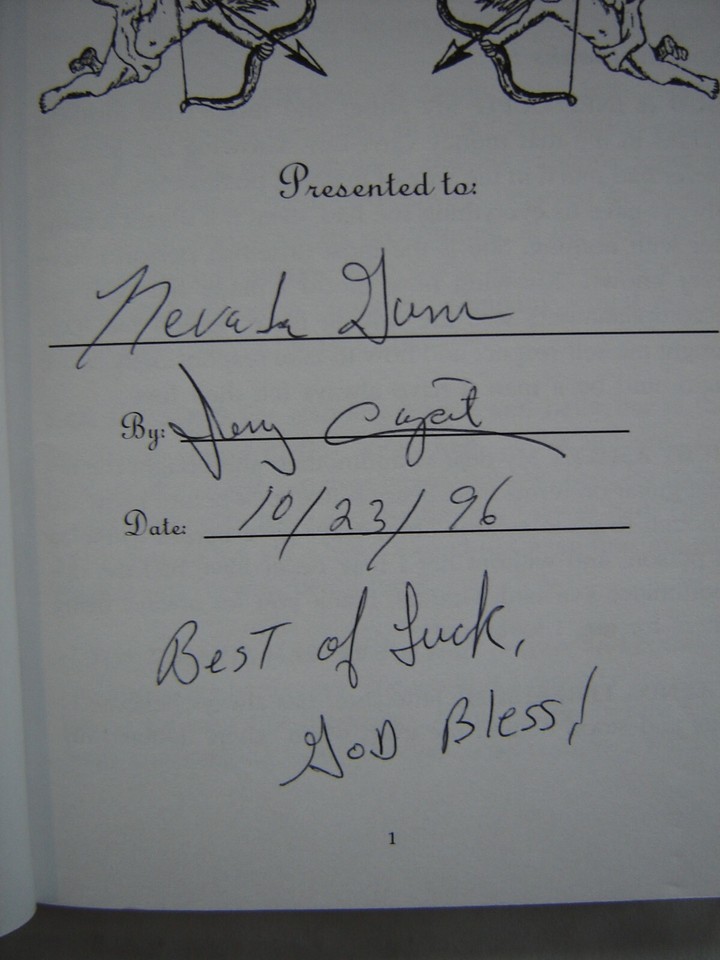 Presented to:
Nevada Gunn
By: Jerry
Date: 10/23/96
BEST of Luck,
GOD Bless!
1